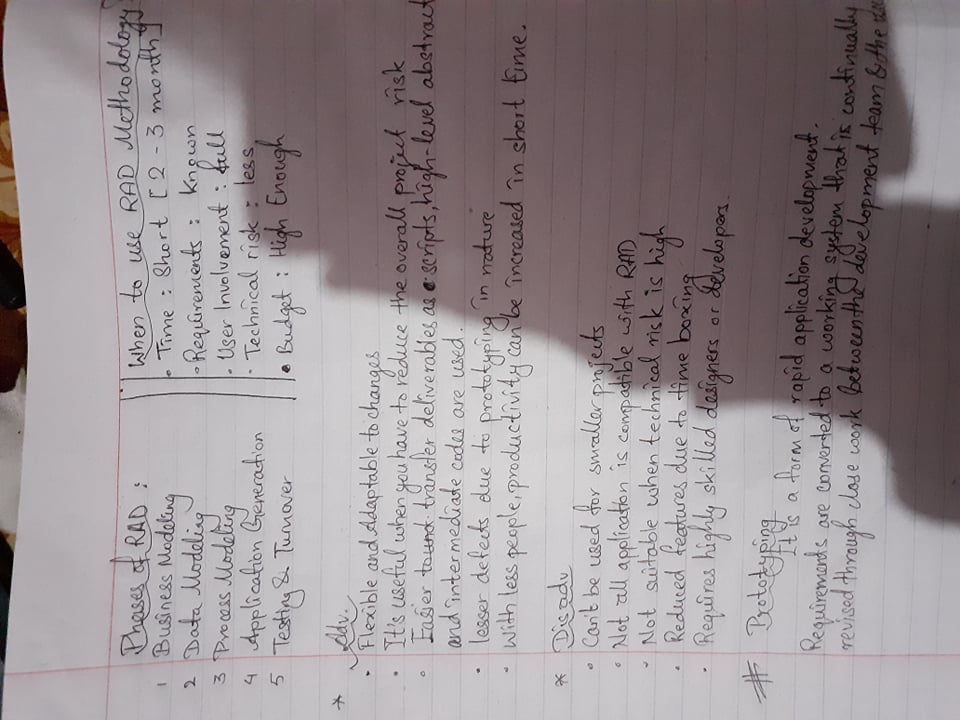 Phases of RAD :
1 Business Modeling
2 Data Modeling
3 Process Modeling
4 Application Generation
5 Testing & Turnover
When to use RAD Methodology
• Time : Short [2 - 3 month]
• Requirements : Known
• User Involvement : full
• Technical risk : less
• Budget : High Enough
* Adv.
• Flexible and Adaptable to changes
• It's useful when you have to reduce the overall project risk
• Easier transfer deliverables as scripts, high-level abstract
and intermediate codes are used.
• lesser defects due to prototyping in nature
• With less people, productivity can be increased in short time.
* Disadv
• Can't be used for smaller projects
• Not all application is compatible with RAD
• Not suitable when technical risk is high
• Reduced features due to time boxing
• Requires highly skilled designers or developers.
# Prototyping
It is a form of rapid application development.
Requirements are converted to a working system that is continually
revised through close work between the development team & the